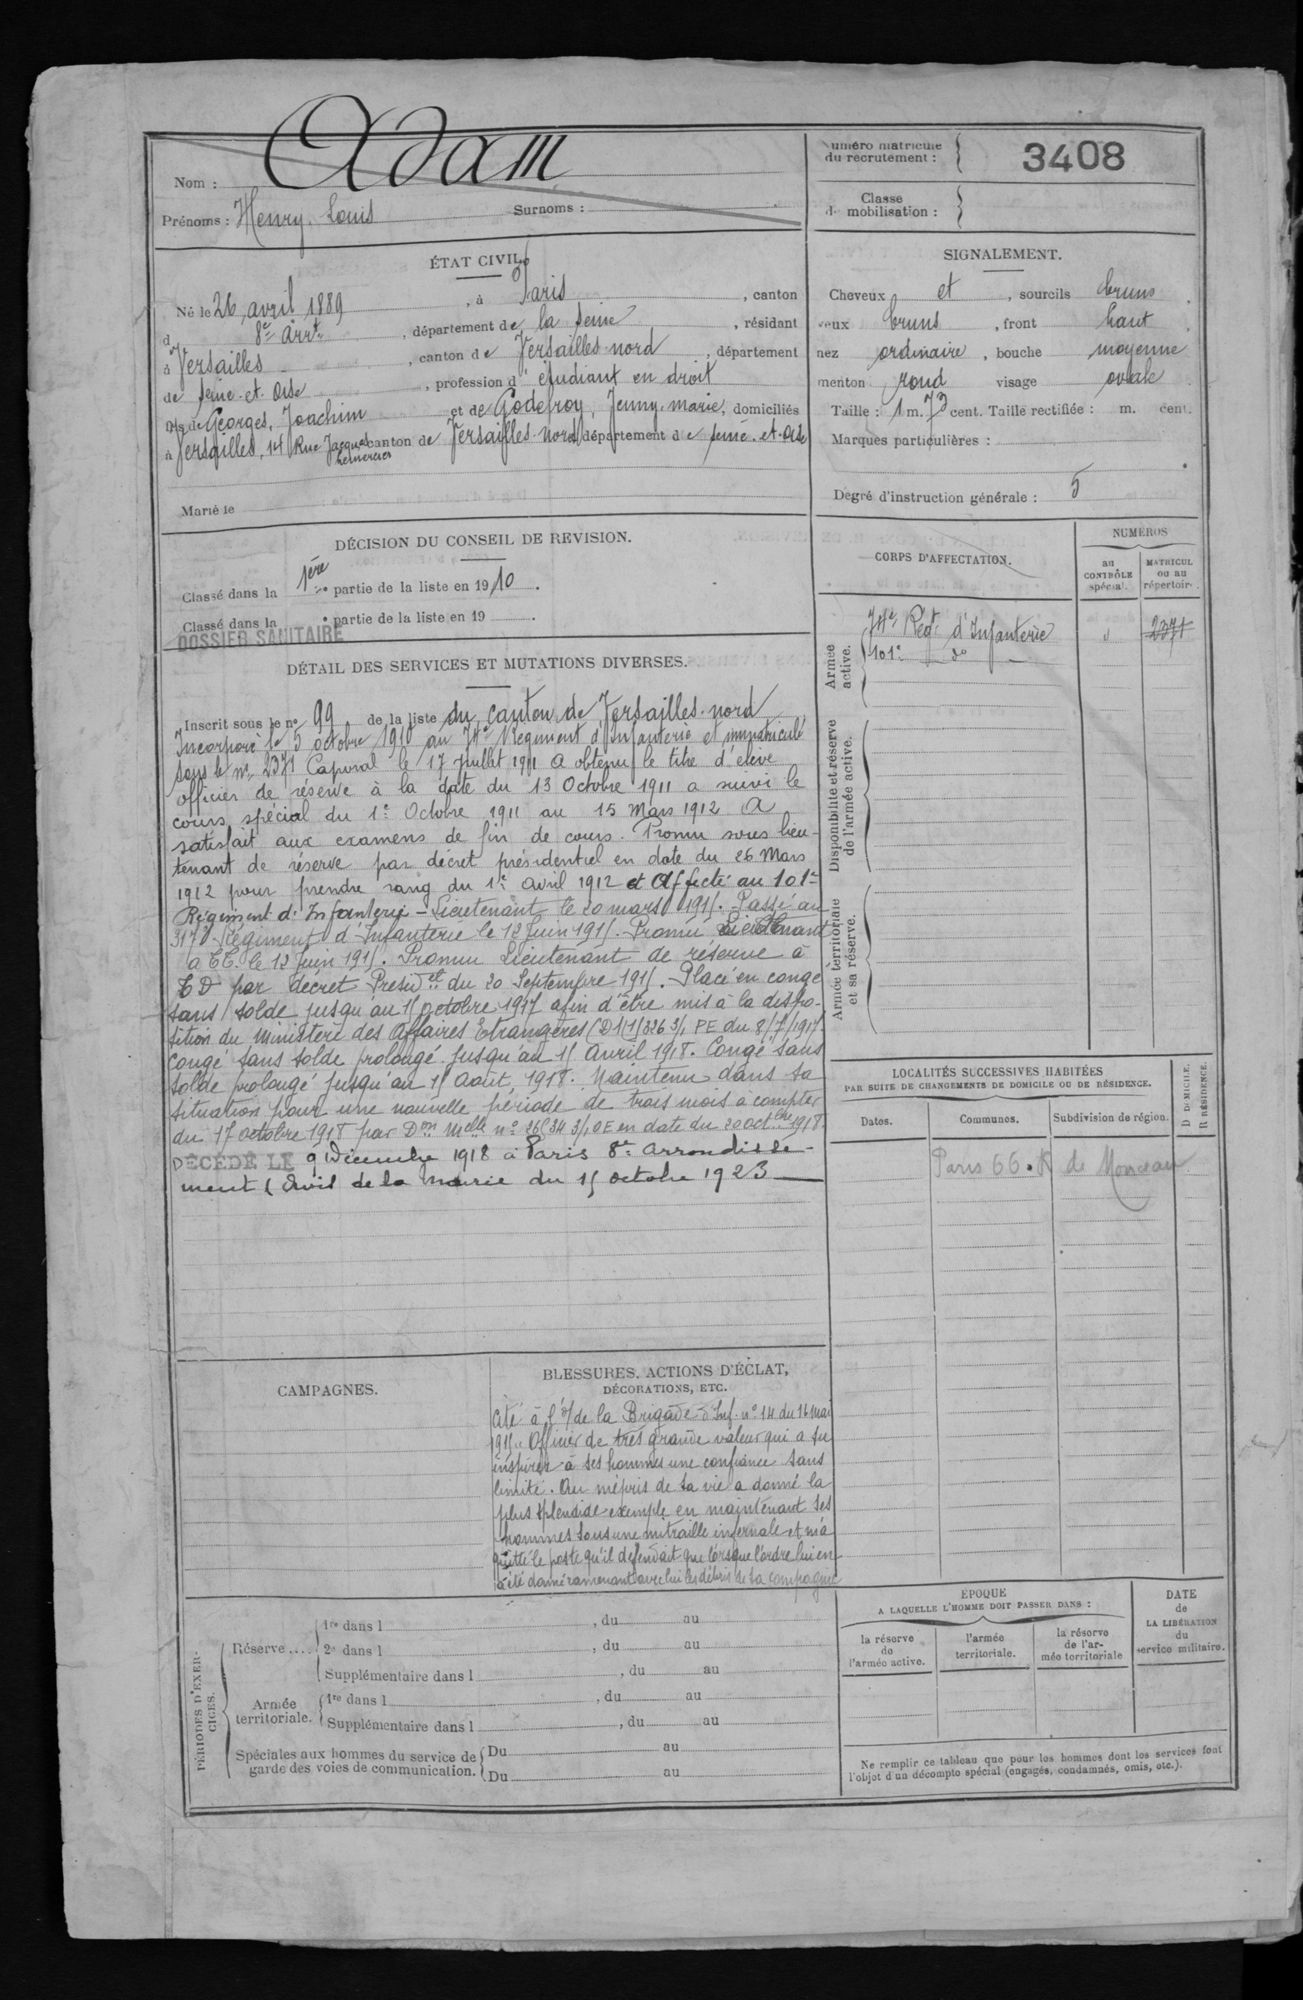 Nom : Adam
Prénoms : Henry Louis Surnoms :
Numéro matricule
du recrutement : 3408
Classe
de mobilisation :
ÉTAT CIVIL.
Né le 26 avril 1889, à Paris, canton
d 8e Arrt, département de la Seine, résidant
à Versailles, canton de Versailles-nord, département
de Seine-et-Oise, profession d'étudiant en droit
fils de Georges, Joachim et de Godefroy, Jenny-marie, domiciliés
à Versailles, 14 Rue Jacques Lemercier canton de Versailles-Nord département de Seine-et-Oise
Marié le
SIGNALEMENT.
Cheveux et, sourcils bruns
yeux bruns, front haut
nez ordinaire, bouche moyenne
menton rond visage ovale
Taille : 1 m. 73 cent. Taille rectifiée : m. cent.
Marques particulières :
Degré d'instruction générale : 5
DÉCISION DU CONSEIL DE REVISION.
Classé dans la 1ère partie de la liste en 1910.
Classé dans la partie de la liste en 19
DOSSIER SANITAIRE
DÉTAIL DES SERVICES ET MUTATIONS DIVERSES.
Inscrit sous le no 99 de la liste du canton de Versailles-nord
Incorporé le 5 octobre 1910 au 74e Régiment d'Infanterie et immatriculé
sous le no 2371 Caporal le 17 Juillet 1911 A obtenu le titre d'élève
officier de réserve à la date du 13 Octobre 1911 a suivi le
cours spécial du 1er Octobre 1911 au 15 Mars 1912 A
satisfait aux examens de fin de cours. Promu sous lieu-
tenant de réserve par décret présidentiel en date du 26 Mars
1912 pour prendre rang du 1er Avril 1912 et Affecté au 101e
Régiment d'Infanterie - Lieutenant le 20 mars 1915. Passé au
317e Régiment d'Infanterie le 12 Juin 1915. Promu Lieutenant
à TT. le 12 Juin 1915. Promu Lieutenant de réserve à
TD par décret Présidel du 20 Septembre 1915. Placé en congé
sans solde jusqu'au 15 octobre 1917 afin d'être mis à la dispo-
sition du Ministère des Affaires Etrangères (D 326 3/5 PE du 8/7/1917
Congé sans solde prolongé jusqu'au 15 Avril 1918. Congé sans
solde prolongé jusqu'au 15 Août 1918. Maintenu dans sa
situation pour une nouvelle période de trois mois à compter
du 17 octobre 1918 par Don Melle no 26634 3/5 OE en date du 20 octobre 1918.
DÉCÉDÉ LE 9 Décembre 1918 à Paris 8e arrondisse-
ment (Avis de la Mairie du 15 octobre 1923
CORPS D'AFFECTATION.
NUMÉROS
au CONTRÔLE spécial.
MATRICULE ou au répertoire.
Armée active.
74e Régt d'Infanterie 2371
101e do
Disponibilité et réserve de l'armée active.
Armée territoriale et sa réserve.
LOCALITÉS SUCCESSIVES HABITÉES
PAR SUITE DE CHANGEMENTS DE DOMICILE OU DE RÉSIDENCE.
D DOMICILE. R RÉSIDENCE.
Dates. Communes. Subdivision de région.
Paris 66. R de Monceau
CAMPAGNES.
BLESSURES, ACTIONS D'ÉCLAT,
DÉCORATIONS, ETC.
Cité à l'o/ de la Brigade d'Inf. no 14 du 16 mai
1915. Officier de très grande valeur qui a su
inspirer à ses hommes une confiance sans
limite. Au mépris de sa vie a donné la
plus splendide exemple en maintenant ses
hommes sous une mitraille infernale et n'a
quitté le poste qu'il défendait que lorsque l'ordre lui en
a été donné ramenant avec lui les débris de sa compagnie
PÉRIODES D'EXERCICES.
Réserve.... 1re dans l , du au
2e dans l , du au
Supplémentaire dans l , du au
Armée territoriale. 1re dans l , du au
Supplémentaire dans l , du au
Spéciales aux hommes du service de Du au
garde des voies de communication. Du au
ÉPOQUE
A LAQUELLE L'HOMME DOIT PASSER DANS :
la réserve de l'armée active.
l'armée territoriale.
la réserve de l'armée territoriale
DATE
de
LA LIBÉRATION
du
service militaire.
Ne remplir ce tableau que pour les hommes dont les services font
l'objet d'un décompte spécial (engagés, condamnés, omis, etc.).